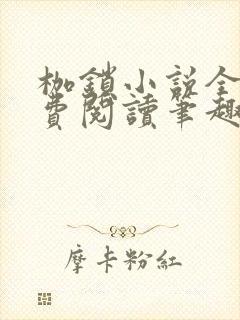 枷鎖小說全
費閱讀筆趣
摩卡粉紅